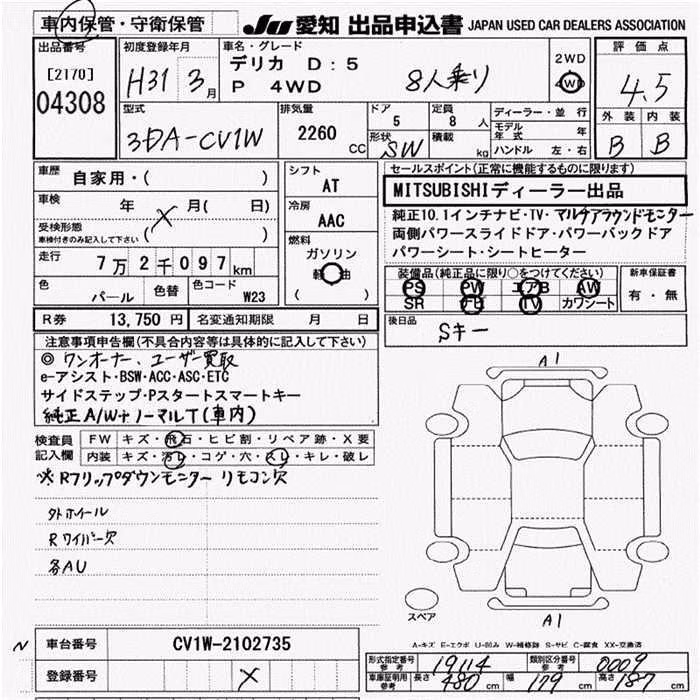 車内保管・守衛保管
JU 愛知 出品申込書 JAPAN USED CAR DEALERS ASSOCIATION
出品番号
[2170]
04308
初度登録年月
H31 3月
車名・グレード
デリカ D:5
P 4WD
8人乗り
2WD
4WD
評価点
4.5
外装 内装
B B
型式
3DA-CV1W
排気量
2260 CC
ドア
5
形状
SW
定員
8 人
積載
kg
ディーラー・並行
モデル年式 年
ハンドル 左・右
車歴
自家用・( )
車検
年 月( 日)
X
受検形態
車検付きのみ記入して下さい
( )
走行
7万2千097km
色
パール
色替
色コード
W23
シフト
AT
冷房
AAC
燃料
ガソリン
軽油
( )
R券 13,750 円
名変通知期限 月 日
セールスポイント(正常に機能するものに限ります)
MITSUBISHIディーラー出品
純正10.1インチナビ・TV・マルチアラウンドモニター
両側パワースライドドア・パワーバックドア
パワーシート・シートヒーター
装備品(純正品に限り○をつけてください)
PS PW エアB AW
SR ナビ TV カワシート
新車保証書
有・無
後日品
Sキー
注意事項申告欄(不具合内容等は具体的に記入して下さい)
◎ワンオーナー、ユーザー買取
e-アシスト・BSW・ACC・ASC・ETC
サイドステップ・Pスタートスマートキー
純正A/W+ノーマルT(車内)
検査員記入欄
FW キズ・飛石・ヒビ割・リペア跡・X要
内装 キズ・汚レ・コゲ・穴・スレ・キレ・破レ
※Rフリップダウンモニター リモコン欠
外ホイール
Rワイパー欠
各AU
A1
スペア
A1
A-キズ E-エクボ U-凹み W-補修跡 S-サビ C-腐食 XX-交換済
N
車台番号 CV1W-2102735
登録番号 X
形式指定番号 参考 19114
類別区分番号 参考 0009
車庫証明用 参考 長さ 480 cm 幅 179 cm 高さ 187 cm